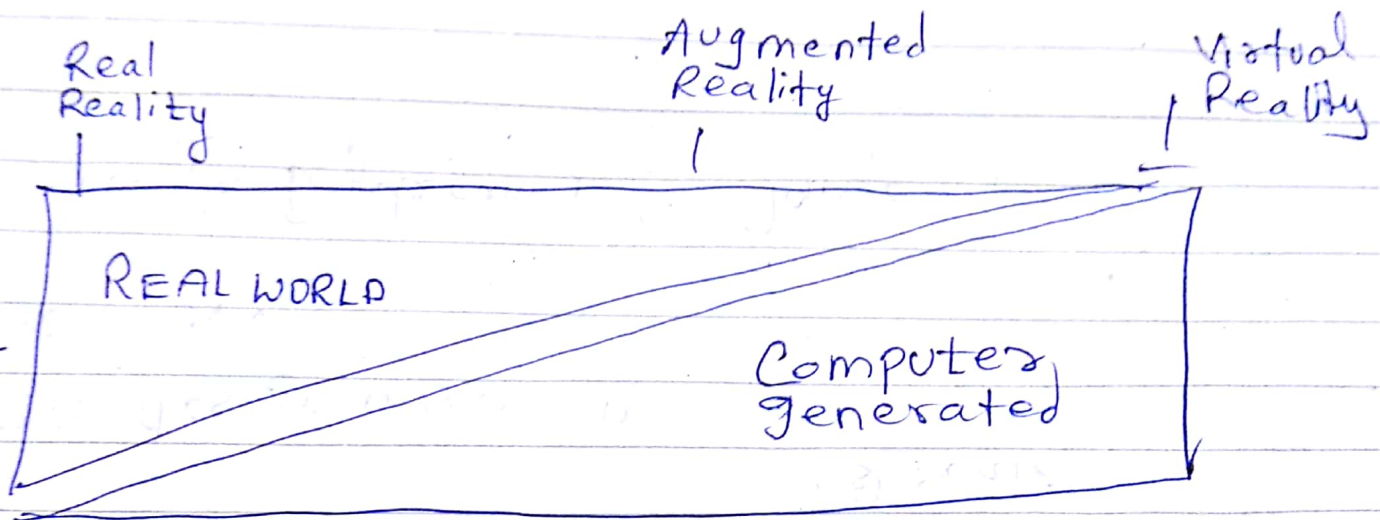 Real
Reality
Augmented
Reality
Virtual
Reality
REAL WORLD
Computer
generated